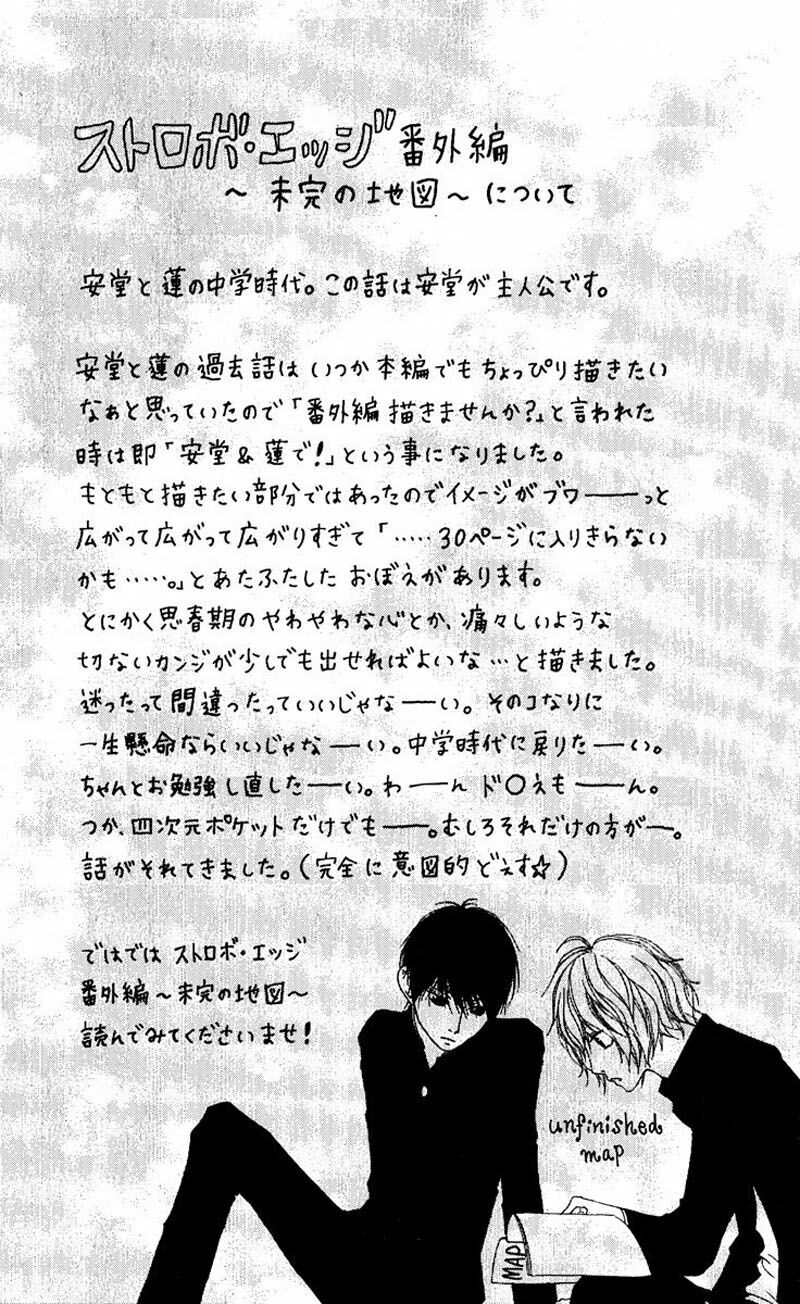 ストロボ・エッジ 番外編
～ 未完の地図 ～ について
安堂と蓮の中学時代。この話は安堂が主人公です。
安堂と蓮の過去話は いつか本編でもちょっぴり描きたい
なぁと思っていたので「番外編描きませんか?」と言われた
時は即「安堂&蓮で!」という事になりました。
もともと描きたい部分ではあったのでイメージがブワーーっと
広がって広がって広がりすぎて「……30ページに入りきらない
かも……。」とあたふたした おぼえがあります。
とにかく思春期のやわやわな心とか、痛々しいような
切ないカンジが少しでも出せればよいな…と描きました。
迷ったって間違ったっていいじゃなーい。そのコなりに
一生懸命ならいいじゃなーい。中学時代に戻りたーい。
ちゃんとお勉強し直したーい。わーん ド〇えもーん。
つか、四次元ポケットだけでもー。むしろそれだけの方がー。
話がそれてきました。(完全に意図的どぇす☆)
ではでは ストロボ・エッジ
番外編～未完の地図～
読んでみてくださいませ!
unfinished
map
MAP